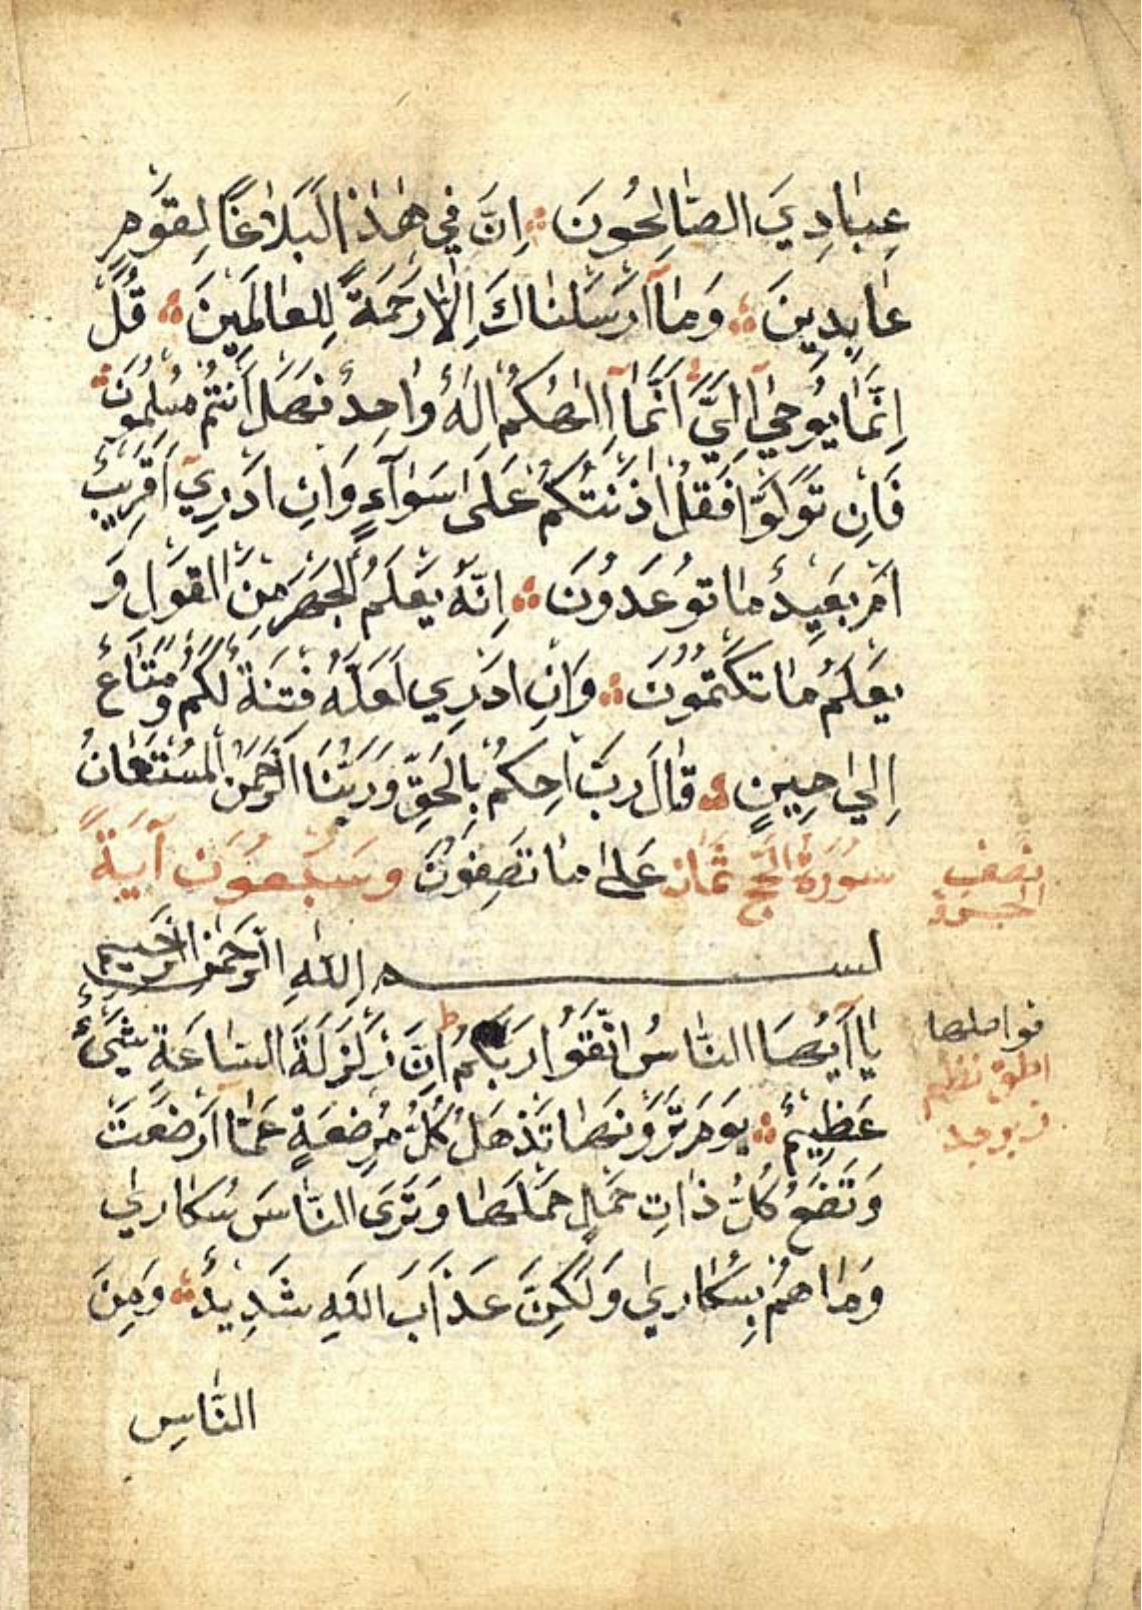 عِبَادِيَ الصَّالِحُونَ ۞ اِنَّ فِي هٰذَا لَبَلَاغًا لِقَوْمٍ
عَابِدِينَ ۞ وَمَا اَرْسَلْنَاكَ اِلَّا رَحْمَةً لِلْعَالَمِينَ ۞ قُلْ
اِنَّمَا يُوحٰي اِلَيَّ اَنَّمَا اِلٰهُكُمْ اِلٰهٌ وَاحِدٌ فَهَلْ اَنْتُمْ مُسْلِمُونَ ۞
فَاِنْ تَوَلَّوْا فَقُلْ اٰذَنْتُكُمْ عَلَى سَوَآءٍ وَاِنْ اَدْرِي اَقَرِيبٌ
اَمْ بَعِيدٌ مَا تُوعَدُونَ ۞ اِنَّهُ يَعْلَمُ الْجَهْرَ مِنَ الْقَوْلِ وَ
يَعْلَمُ مَا تَكْتُمُونَ ۞ وَاِنْ اَدْرِي لَعَلَّهُ فِتْنَةٌ لَكُمْ وَمَتَاعٌ
اِلٰي حِينٍ ۞ قَالَ رَبِّ احْكُمْ بِالْحَقِّ وَرَبُّنَا الرَّحْمٰنُ الْمُسْتَعَانُ
سُورَةُ الْحَجِّ ثَمَان عَلٰى مَا تَصِفُونَ وَسَبْعُونَ آيَةً
نصف
الجزو
بســـــــــم اللهِ الرَّحْمٰنِ الرَّحِيمِ
يَا اَيُّهَا النَّاسُ اتَّقُوا رَبَّكُمْ ط اِنَّ زَلْزَلَةَ السَّاعَةِ شَيْءٌ
فواصلها
عَظِيمٌ ۞ يَوْمَ تَرَوْنَهَا تَذْهَلُ كُلُّ مُرْضِعَةٍ عَمَّا اَرْضَعَتْ
وَتَضَعُ كُلُّ ذَاتِ حَمْلٍ حَمْلَهَا وَتَرَى النَّاسَ سُكَارٰي
وَمَا هُمْ بِسُكَارٰي وَلٰكِنَّ عَذَابَ اللهِ شَدِيدٌ ۞ وَمِنَ
النَّاسِ